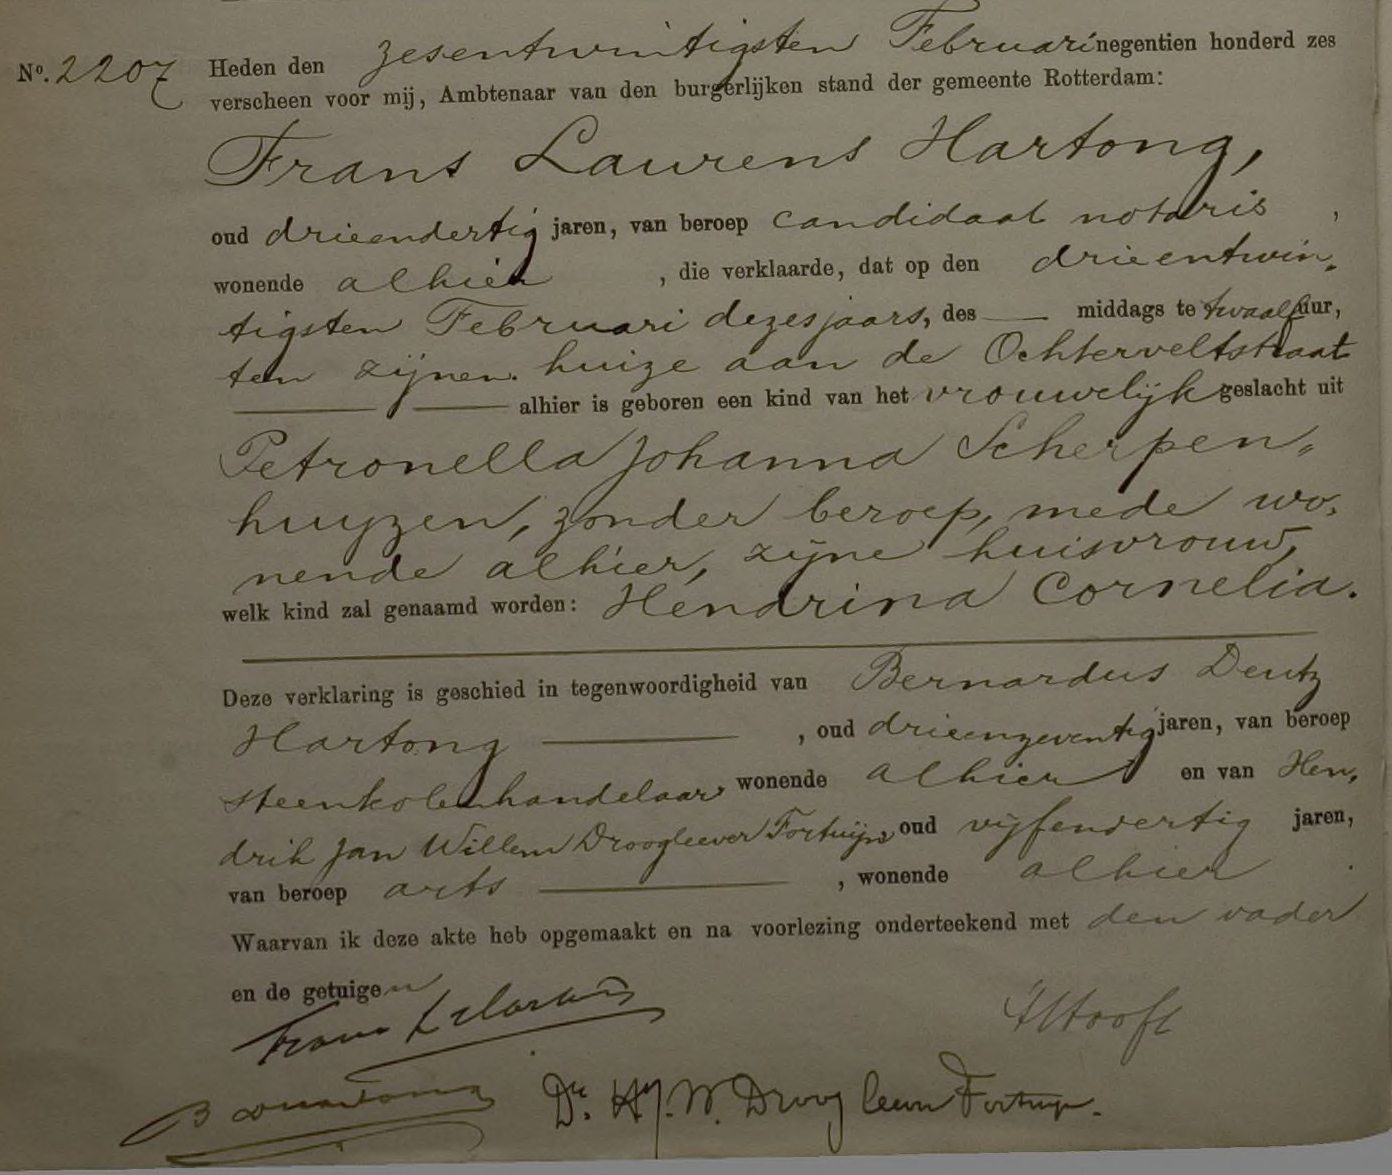 No. 2207 Heden den zesentwintigsten Februari negentien honderd zes
verscheen voor mij, Ambtenaar van den burgerlijken stand der gemeente Rotterdam:
Frans Laurens Hartong,
oud drieendertig jaren, van beroep candidaat notaris,
wonende alhier, die verklaarde, dat op den drieentwin-
tigsten Februari dezes jaars, des — middags te twaalf uur,
ten zijnen huize aan de Ochterveltstraat
alhier is geboren een kind van het vrouwelijk geslacht uit
Petronella Johanna Scherpen-
huyzen, zonder beroep, mede wo-
nende alhier, zijne huisvrouw,
welk kind zal genaamd worden: Hendrina Cornelia.
Deze verklaring is geschied in tegenwoordigheid van Bernardus Deutz
Hartong —, oud drieenzeventig jaren, van beroep
steenkolenhandelaar wonende alhier en van Hen-
drik Jan Willem Droogleever Fortuijn, oud vijfendertig jaren,
van beroep arts —, wonende alhier.
Waarvan ik deze akte heb opgemaakt en na voorlezing onderteekend met den vader
en de getuigen
Frans L Hartong
Hooft
Dr. H.J.W. Droogleever Fortuyn.